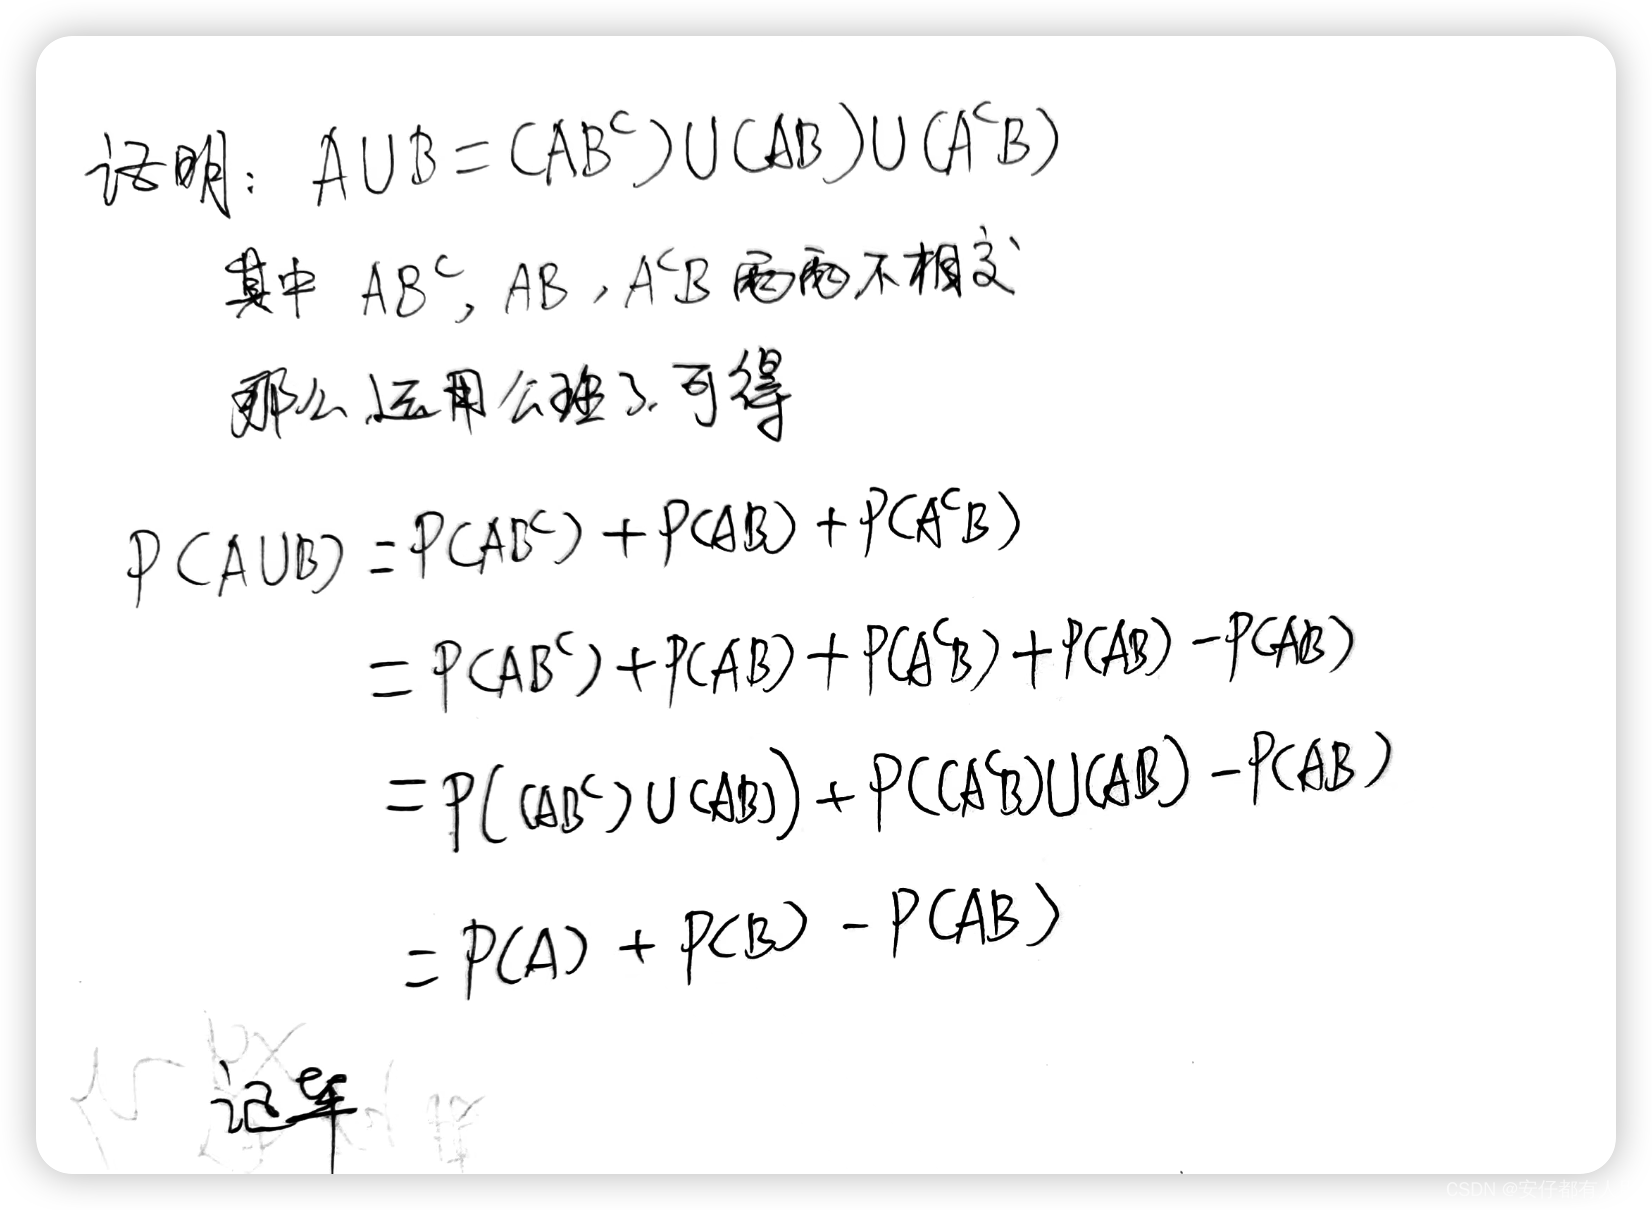 证明: A∪B=(ABᶜ)∪(AB)∪(AᶜB)
其中 ABᶜ, AB, AᶜB 两两不相交
那么运用公理3可得
P(A∪B) =P(ABᶜ)+P(AB)+P(AᶜB)
=P(ABᶜ)+P(AB)+P(AᶜB)+P(AB)-P(AB)
=P((ABᶜ)∪(AB))+P((AᶜB)∪(AB)-P(AB)
=P(A)+P(B)-P(AB)
证毕
CSDN @安仔都有